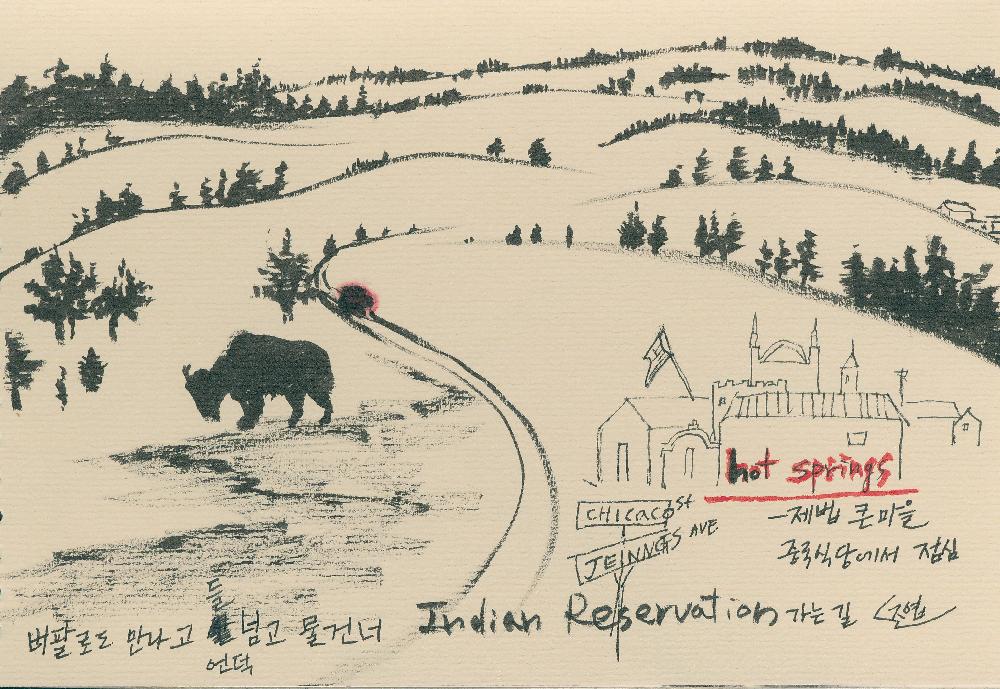 hot springs
-제법 큰마을
중국식당에서 점심
CHICACO ST
JENNGS AVE
버팔로도 만나고 들 넘고 물건너
언덕
Indian Reservation 가는길